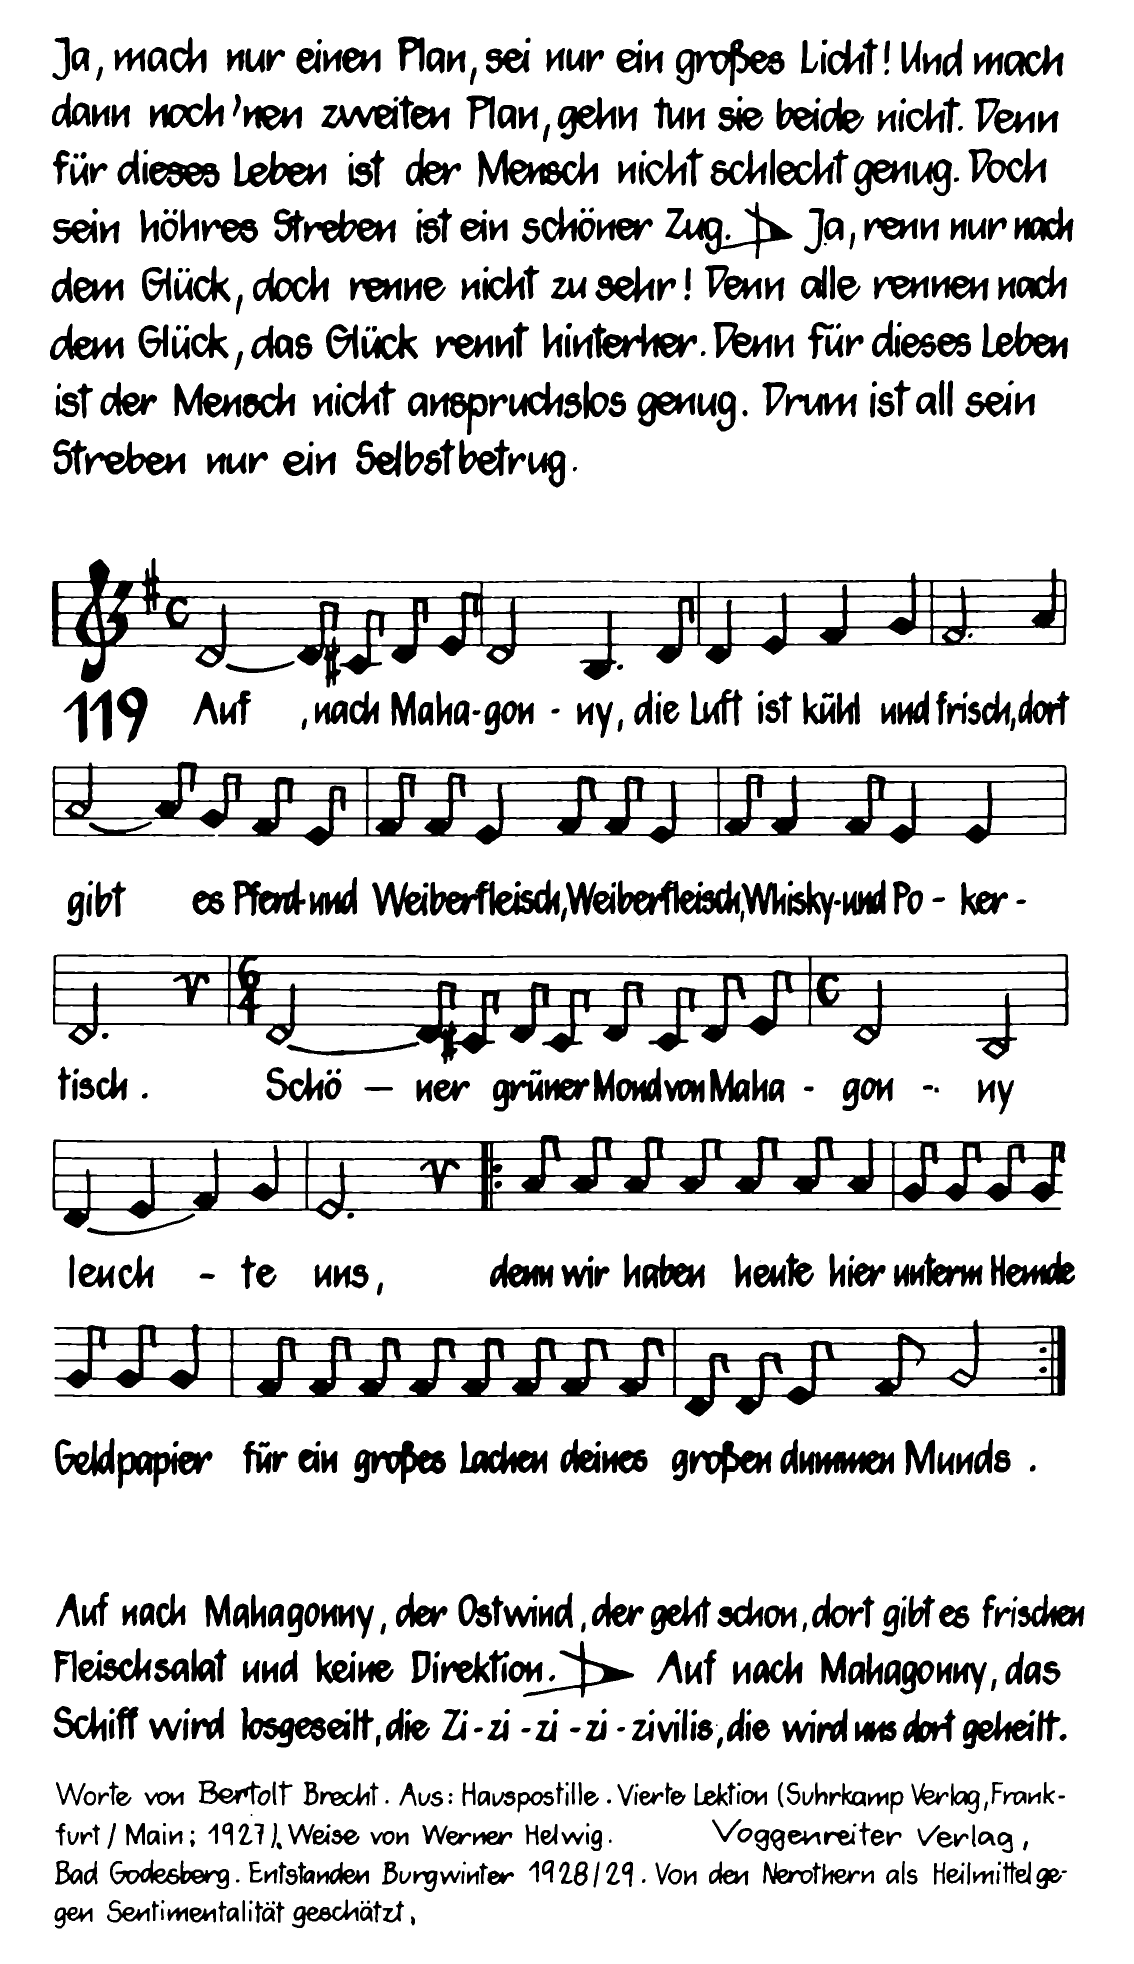 Ja, mach nur einen Plan, sei nur ein großes Licht! Und mach
dann noch 'nen zweiten Plan, gehn tun sie beide nicht. Denn
für dieses Leben ist der Mensch nicht schlecht genug. Doch
sein höhres Streben ist ein schöner Zug. Ja, renn nur nach
dem Glück, doch renne nicht zu sehr! Denn alle rennen nach
dem Glück, das Glück rennt hinterher. Denn für dieses Leben
ist der Mensch nicht anspruchslos genug. Drum ist all sein
Streben nur ein Selbstbetrug.
119 Auf , nach Maha-gon - ny, die Luft ist kühl und frisch, dort
gibt es Pferd-und Weiberfleisch, Weiberfleisch, Whisky-und Po - ker -
6
4
tisch . Schö — ner grüner Mond von Maha - gon - ny
leuch - te uns, denn wir haben heute hier unterm Hemde
Geldpapier für ein großes Lachen deines großen dummen Munds .
Auf nach Mahagonny, der Ostwind, der geht schon, dort gibt es frischen
Fleischsalat und keine Direktion. Auf nach Mahagonny, das
Schiff wird losgeseilt, die Zi-zi-zi-zi-zivilis, die wird uns dort geheilt.
Worte von Bertolt Brecht. Aus: Hauspostille. Vierte Lektion (Suhrkamp Verlag, Frank-
furt / Main; 1927). Weise von Werner Helwig. Voggenreiter Verlag,
Bad Godesberg. Entstanden Burgwinter 1928/29. Von den Nerothern als Heilmittel ge-
gen Sentimentalität geschätzt.